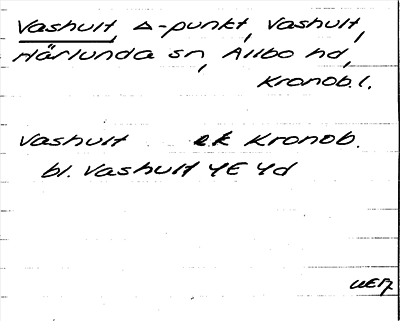 Vashult, Δ-punkt, Vashult,
Härlunda sn, Allbo hd,
Kronob. l.
Vashult ek Kronob.
bl. Vashult 4E 4d